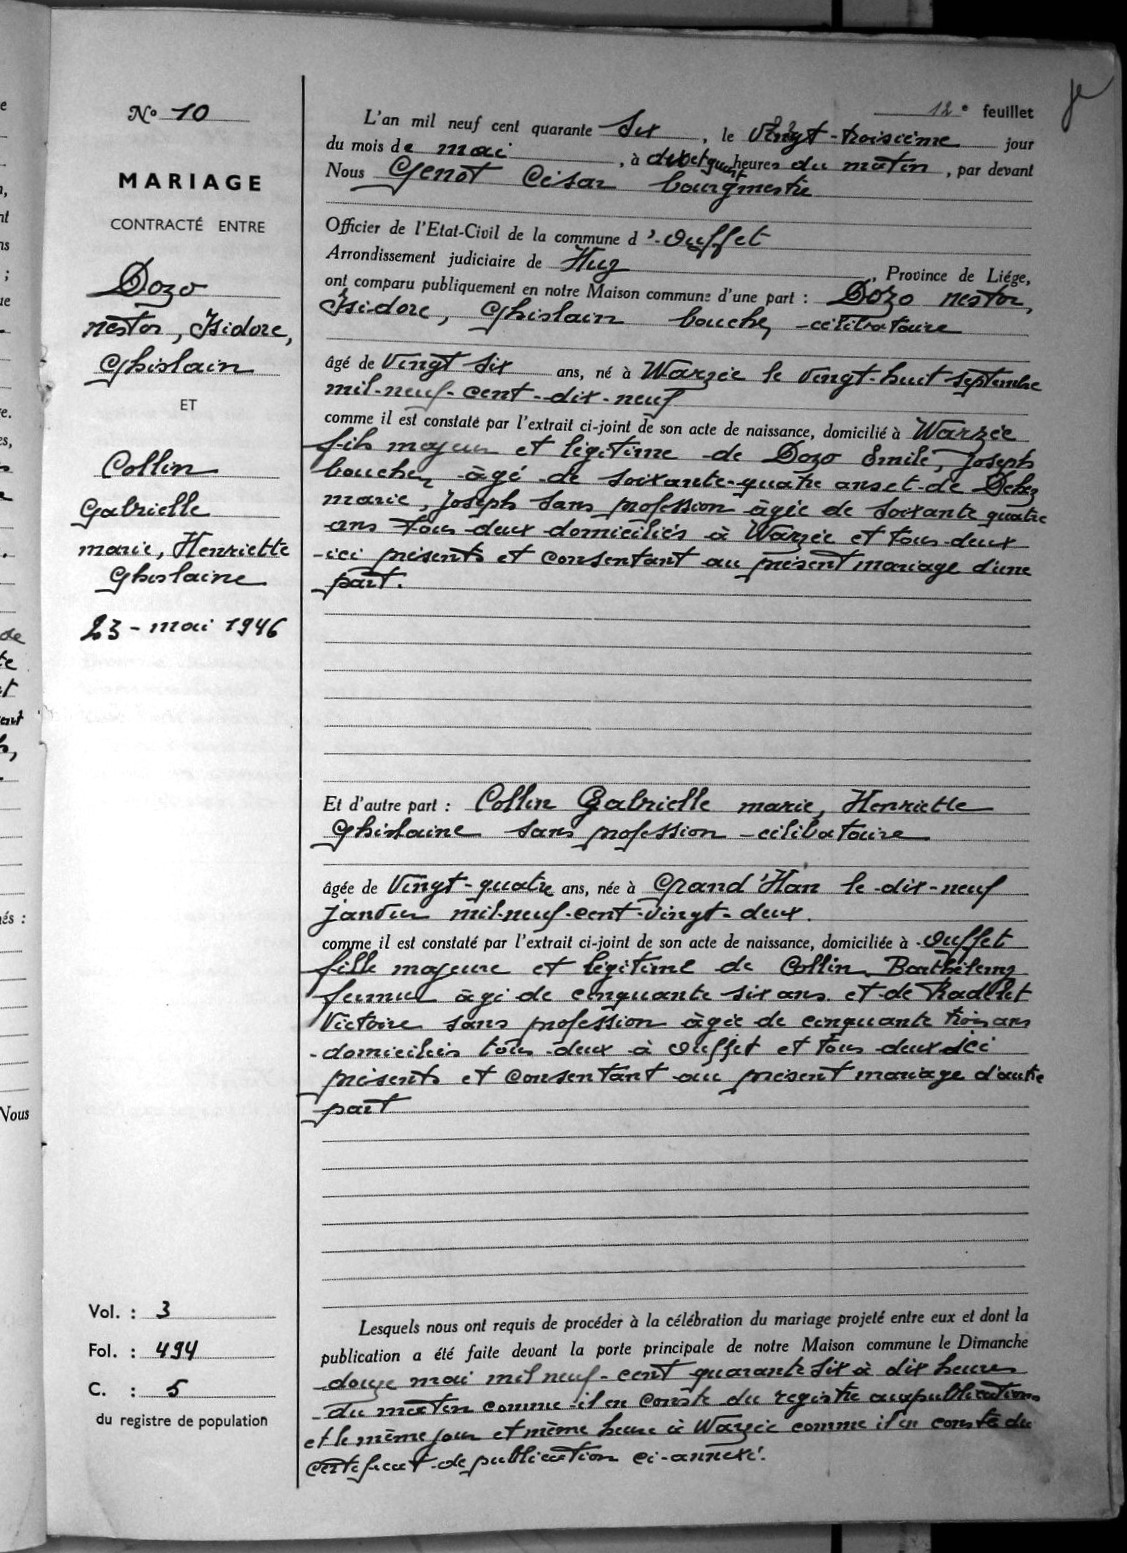 12e feuillet
N° 10
MARIAGE
CONTRACTÉ ENTRE
Dozo
nestor, Isidore,
Ghislain
ET
Collin
Gabrielle
marie, Henriette
Ghislaine
23 - mai 1946
Vol. : 3
Fol. : 494
C. : 5
du registre de population
L'an mil neuf cent quarante six, le vingt-troisième jour
du mois de mai, à heures du matin, par devant
Nous Genot César bourgmestre
Officier de l'Etat-Civil de la commune d'Ouffet
Arrondissement judiciaire de Huy, Province de Liége,
ont comparu publiquement en notre Maison commune d'une part : Dozo nestor,
Isidore, Ghislain boucher, célibataire
âgé de vingt six ans, né à Warzée le vingt-huit septembre
mil-neuf-cent-dix-neuf
comme il est constaté par l'extrait ci-joint de son acte de naissance, domicilié à Warzée
fils majeur et légitime de Dozo Emile, Joseph
boucher âgé de soixante-quatre ans et de
marie, Joseph sans profession âgée de soixante quatre
ans tous deux domiciliés à Warzée et tous deux
ici présents et consentant au présent mariage d'une
part.
Et d'autre part : Collin Gabrielle marie, Henriette
Ghislaine sans profession célibataire
âgée de vingt-quatre ans, née à Grand'Han le dix-neuf
janvier mil-neuf-cent-vingt-deux.
comme il est constaté par l'extrait ci-joint de son acte de naissance, domiciliée à Ouffet
fille majeure et légitime de Collin Barthélemy
âgé de cinquante six ans et de Radelet
Victoire sans profession âgée de cinquante trois ans
domiciliés tous deux à Ouffet et tous deux ici
présents et consentant au présent mariage d'autre
part
Lesquels nous ont requis de procéder à la célébration du mariage projeté entre eux et dont la
publication a été faite devant la porte principale de notre Maison commune le Dimanche
douze mai mil neuf-cent quarante six à dix heures
du matin comme il en conste du registre aux publications
et le même jour et même heure à Warzée comme il en conste du
certificat de publication ci-annexé.
Nous